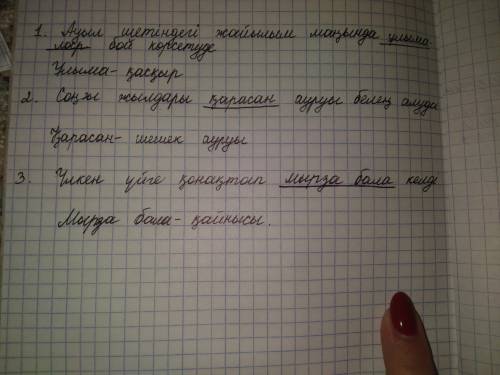 1. Ауыл шетіндегі жайылым маңында ұлыма-
лар бой көрсетуде
Ұлыма- қасқыр
2. Соңғы жылдары қарасан ауруы белең алуда
Қарасан- шешек ауруы
3. Үлкен үйге қонақтап мырза бала келді
Мырза бала- қайнысы.